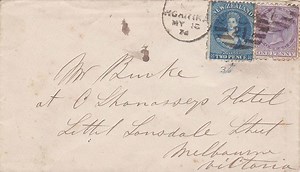 HOKITIKA
MY 12
74
NEW ZEALAND
TWO PENCE
ONE PENNY
Mr Burke
at O Shanasseys Hotel
Littel Lonsdale Street
Melbourne
Victoria